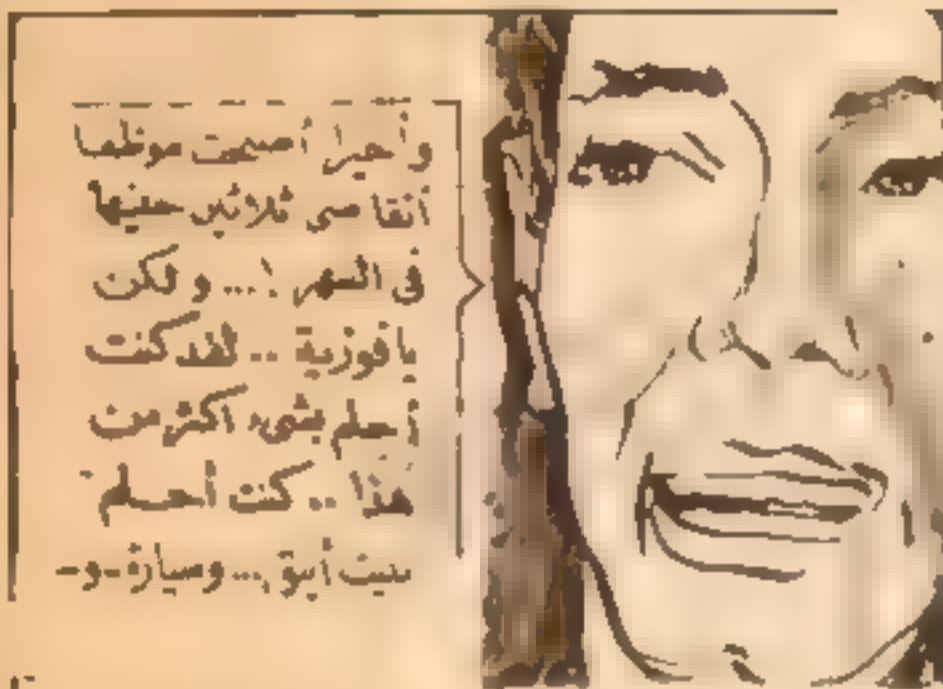 وأخيرا أصبحت موظفا
أتقاضى ثلاثين جنيها
فى الشهر !... ولكن
يا فوزية .. لقد كنت
أحلم بشىء أكثر من
هذا .. كنت أحلم
ببيت أنيق ... وسيارة - و -